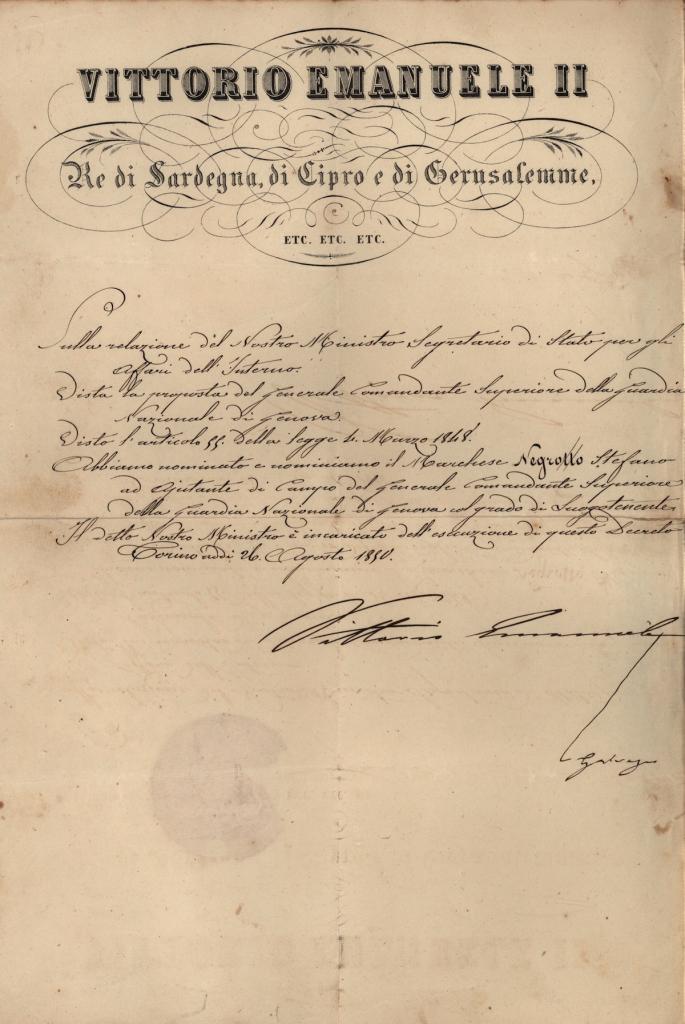 VITTORIO EMANUELE II
Re di Sardegna, di Cipro e di Gerusalemme,
ETC. ETC. ETC.
Sulla relazione del Nostro Ministro Segretario di Stato per gli
Affari dell' Interno.
Vista la proposta del Generale Comandante Superiore della Guardia
Nazionale di Genova.
Visto l' articolo 55. della legge 4. Marzo 1848.
Abbiamo nominato e nominiamo il Marchese Negrotto Stefano
ad Ajutante di Campo del Generale Comandante Superiore
della Guardia Nazionale di Genova col grado di Luogotenente.
Il detto Nostro Ministro è incaricato dell' esecuzione di questo Decreto
Torino addì 26. Agosto 1850.
Vittorio Emanuele
Galvagno